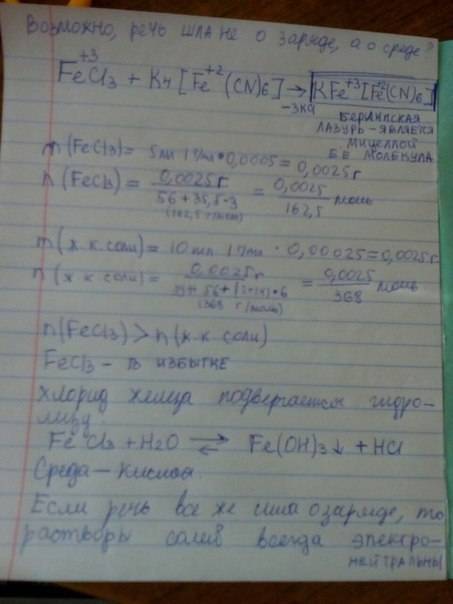 Возможно, речь шла не о заряде, а о среде?
+3
FeCl3 + K4 [Fe+2(CN)6] → KFe+3[Fe+2(CN)6]
-3KCl
БЕРЛИНСКАЯ
ЛАЗУРЬ - ЯВЛЯЕТСЯ
МИЦЕЛЛОЙ
Б.Е. МОЛЕКУЛА
m(FeCl3) = 5мл 1г/мл • 0,0005 = 0,0025г
n(FeCl3) = 0,0025г / 56 + 35,5•3 = 0,0025 / 162,5 моль
(162,5 г/моль)
m(ж к соли) = 10мл 1г/мл • 0,00025 = 0,0025г
n(ж к соли) = 0,0025г / 39•4 + 56 + (12+14)•6 = 0,0025 / 368 моль
(368 г/моль)
n(FeCl3) > n(ж к соли)
FeCl3 - в ИЗБЫТКЕ
хлорид железа подвергается гидро-
лизу
FeCl3 + H2O ⇄ Fe(OH)3↓ + HCl
Среда - кислая
Если речь все же шла о заряде, то
растворы солей всегда электро-
НЕЙТРАЛЬНЫ